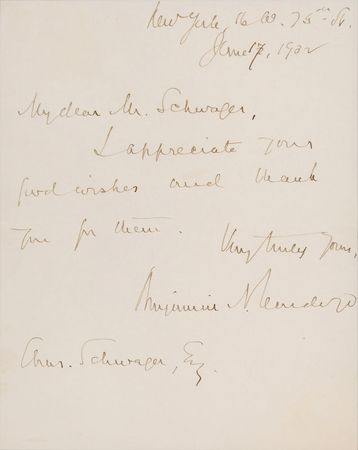 New York 16 W. 75th St.
June 17, 1932
My dear Mr. Schwager,
I appreciate your
good wishes and thank
you for them.
Very truly yours,
Benjamin N. Cardozo
Chas. Schwager, Esq.